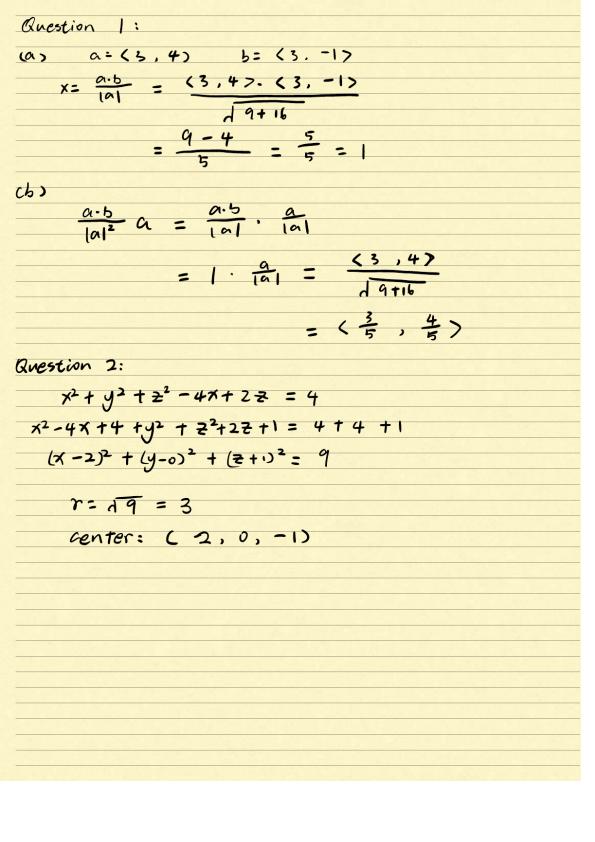 Question 1:
(a) a = <3, 4> b = <3. -1>
x = a·b/|a| = <3, 4>. <3, -1>/√9+16
= 9-4/5 = 5/5 = 1
(b)
a·b/|a|² a = a·b/|a| · a/|a|
= 1 · a/|a| = <3, 4>/√9+16
= <3/5, 4/5>
Question 2:
x² + y² + z² - 4x + 2z = 4
x² - 4x + 4 + y² + z² + 2z + 1 = 4 + 4 + 1
(x-2)² + (y-0)² + (z+1)² = 9
r = √9 = 3
center: (2, 0, -1)